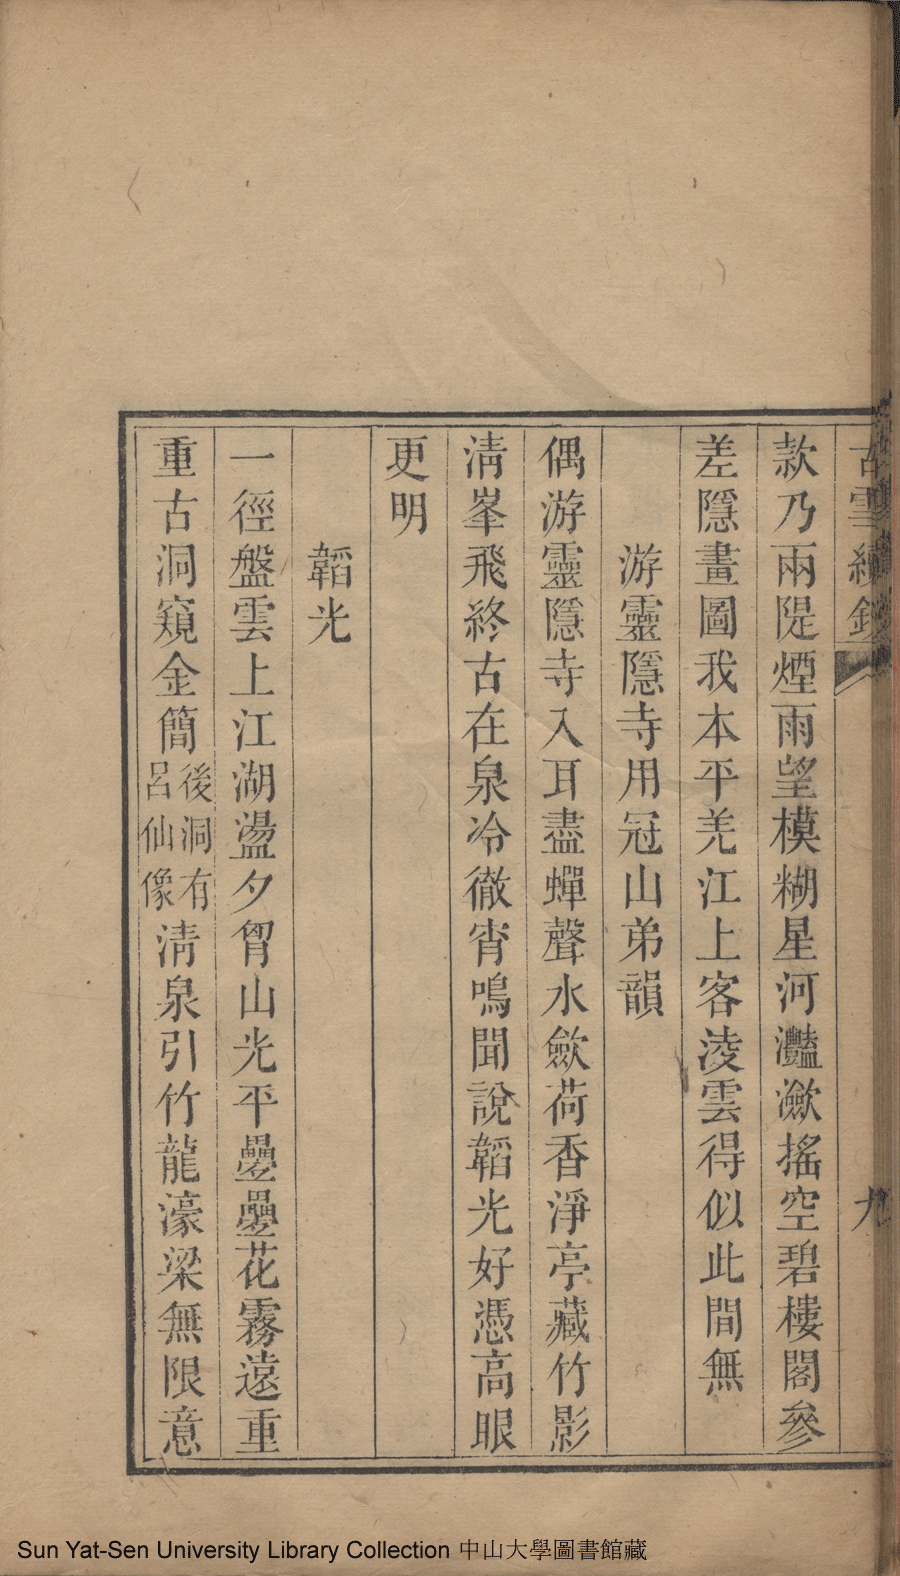 古雲續鈔
九
款乃兩隄煙雨望模糊星河灩瀲搖空碧樓閣參
差隱畫圖我本平羌江上客淩雲得似此間無
游靈隱寺用冠山弟韻
偶游靈隱寺入耳盡蟬聲水歛荷香淨亭藏竹影
淸峯飛終古在泉冷徹宵鳴聞說韜光好憑高眼
更明
韜光
一徑盤雲上江湖盪夕胷山光平疊疊花霧遠重
重古洞窺金簡後洞有呂仙像淸泉引竹龍濠梁無限意
Sun Yat-Sen University Library Collection 中山大學圖書館藏